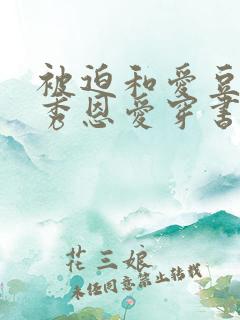 被迫和愛豆
秀恩愛穿書
花三娘
未经同意禁止转载